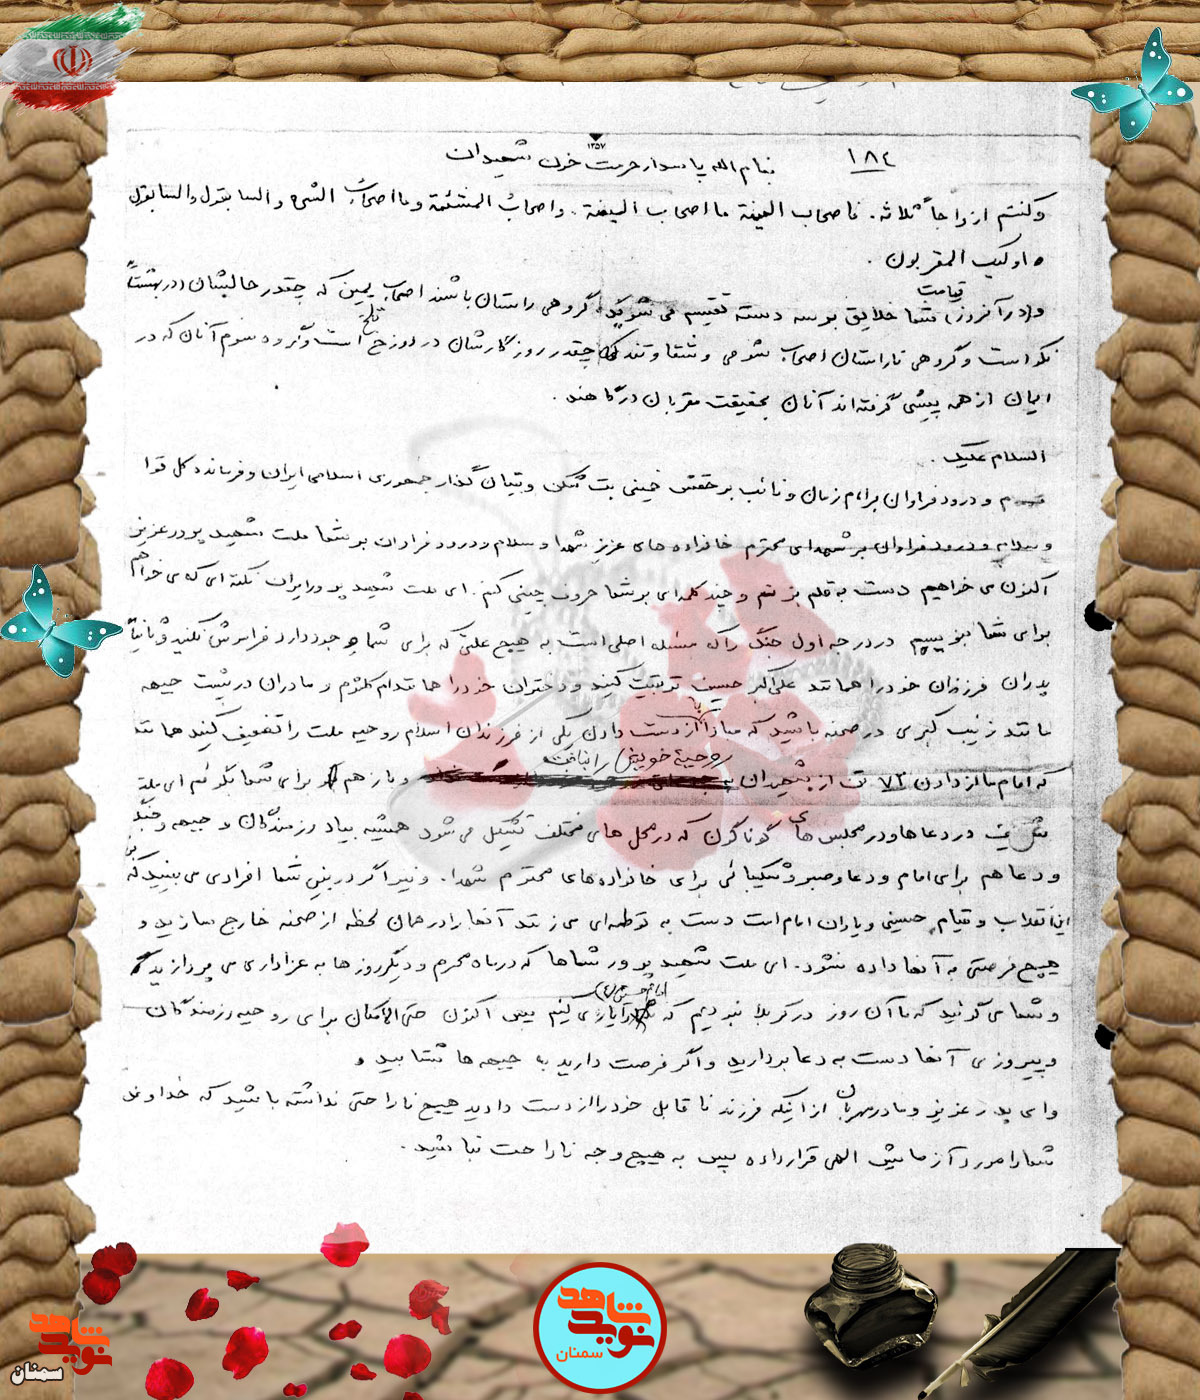 ۱۸۴
۱۳۵۷
بنام الله پاسدار حرمت خون شهیدان
وکنتم ازواجاً ثلاثه. فاصحاب المیمنة ما اصحاب المیمنة. واصحاب المشئمة وما اصحاب المشئمه والسابقون والسابقون
اولئک المقربون.
و(در آنروز) قیامت شما خلایق بر سه دسته تقسیم می شوید گروهی راستان باشند اصحاب یمین که چقدر حالشان (در بهشت)
نکو است و گروهی ناراستان اصحاب شومی و شقاوتند که چقدر روزگارشان در دوزخ تلخ است و گروه سوم آنان که در
ایمان از همه پیشی گرفته اند آنان بحقیقت مقربان درگاهند.
السلام علیک.
و درود فراوان بر امام زمان و نائب بر حقش خمینی بت شکن و بنیان گذار جمهوری اسلامی ایران و فرمانده کل قوا
و سلام و درود فراوان بر شهدای محترم خانواده های عزیز شهدا و سلام و درود فراوان بر شما ملت شهید پرور عزیز
اکنون می خواهیم دست به قلم بزنم و چند کلمه ای بر شما حروف چینی کنم. ای ملت شهید پرور ایران نکته ای که می خواهم
برای شما بنویسم در درجه اول جنگ را که مسئله اصلی است به هیچ علتی که برای شما وجود دارد فراموش نکنید و ثانیاً
پدران فرزندان خود را همانند علی اکبر حسین تربیت کنند و دختران خود را همانند ام کلثوم و مادران در پشت جبهه
مانند زینب کبری در صحنه باشید که مبادا با از دست دادن یکی از فرزندان اسلام روحیه ملت را تضعیف کنید همانند
که امام ما از دادن ۷۲ تن از شهیدان روحیهٔ خویش را نباخت و باز هم برای شما بگویم ای ملت
شریف در دعاها و در مجلس های گوناگون که در محل های مختلف تشکیل می شود همیشه بیاد رزمندگان و جبهه و جنگ
و دعا هم برای امام و دعا و صبر و شکیبائی برای خانواده های محترم شهدا. و نیز اگر در بین شما افرادی می بینید که بر
این انقلاب و قیام حسینی و یاران امام است دست به توطئه ای می زنند آنها را در همان لحظه از صحنه خارج سازید و
هیچ فرصتی به آنها داده نشود. ای ملت شهید پرور شماها که در ماه محرم و دیگر روزها به عزاداری می پردازید
و شما می گوئید که ما آن روز در کربلا نبودیم که امام حسین (ع) را یاری کنیم پس اکنون حتی الامکان برای روحیه رزمندگان
و پیروزی آنها دست به دعا بردارید و اگر فرصت دارید به جبهه ها بشتابید و
وای پدر عزیز و مادر مهربان از اینکه فرزند ناقابل خود را از دست دادید هیچ ناراحتی نداشته باشید که خداوند
شما را مورد آزمایش الهی قرار داده پس به هیچ وجه ناراحت نباشید.
نوید شاهد
سمنان
نوید شاهد
سمنان